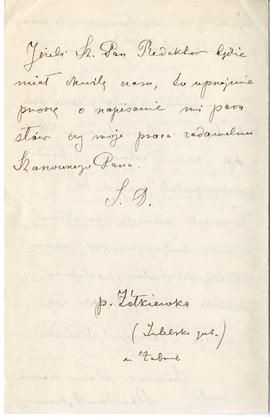 Jeżeli Sz. Pan Redaktor będzie
miał chwilę czasu, to uprzejmie
proszę o napisanie mi parę
słów czy moje praca zadawalnia
Szanownego Pana.
S. D.
p. Żółkiewka
(Lubelska gub.)
w